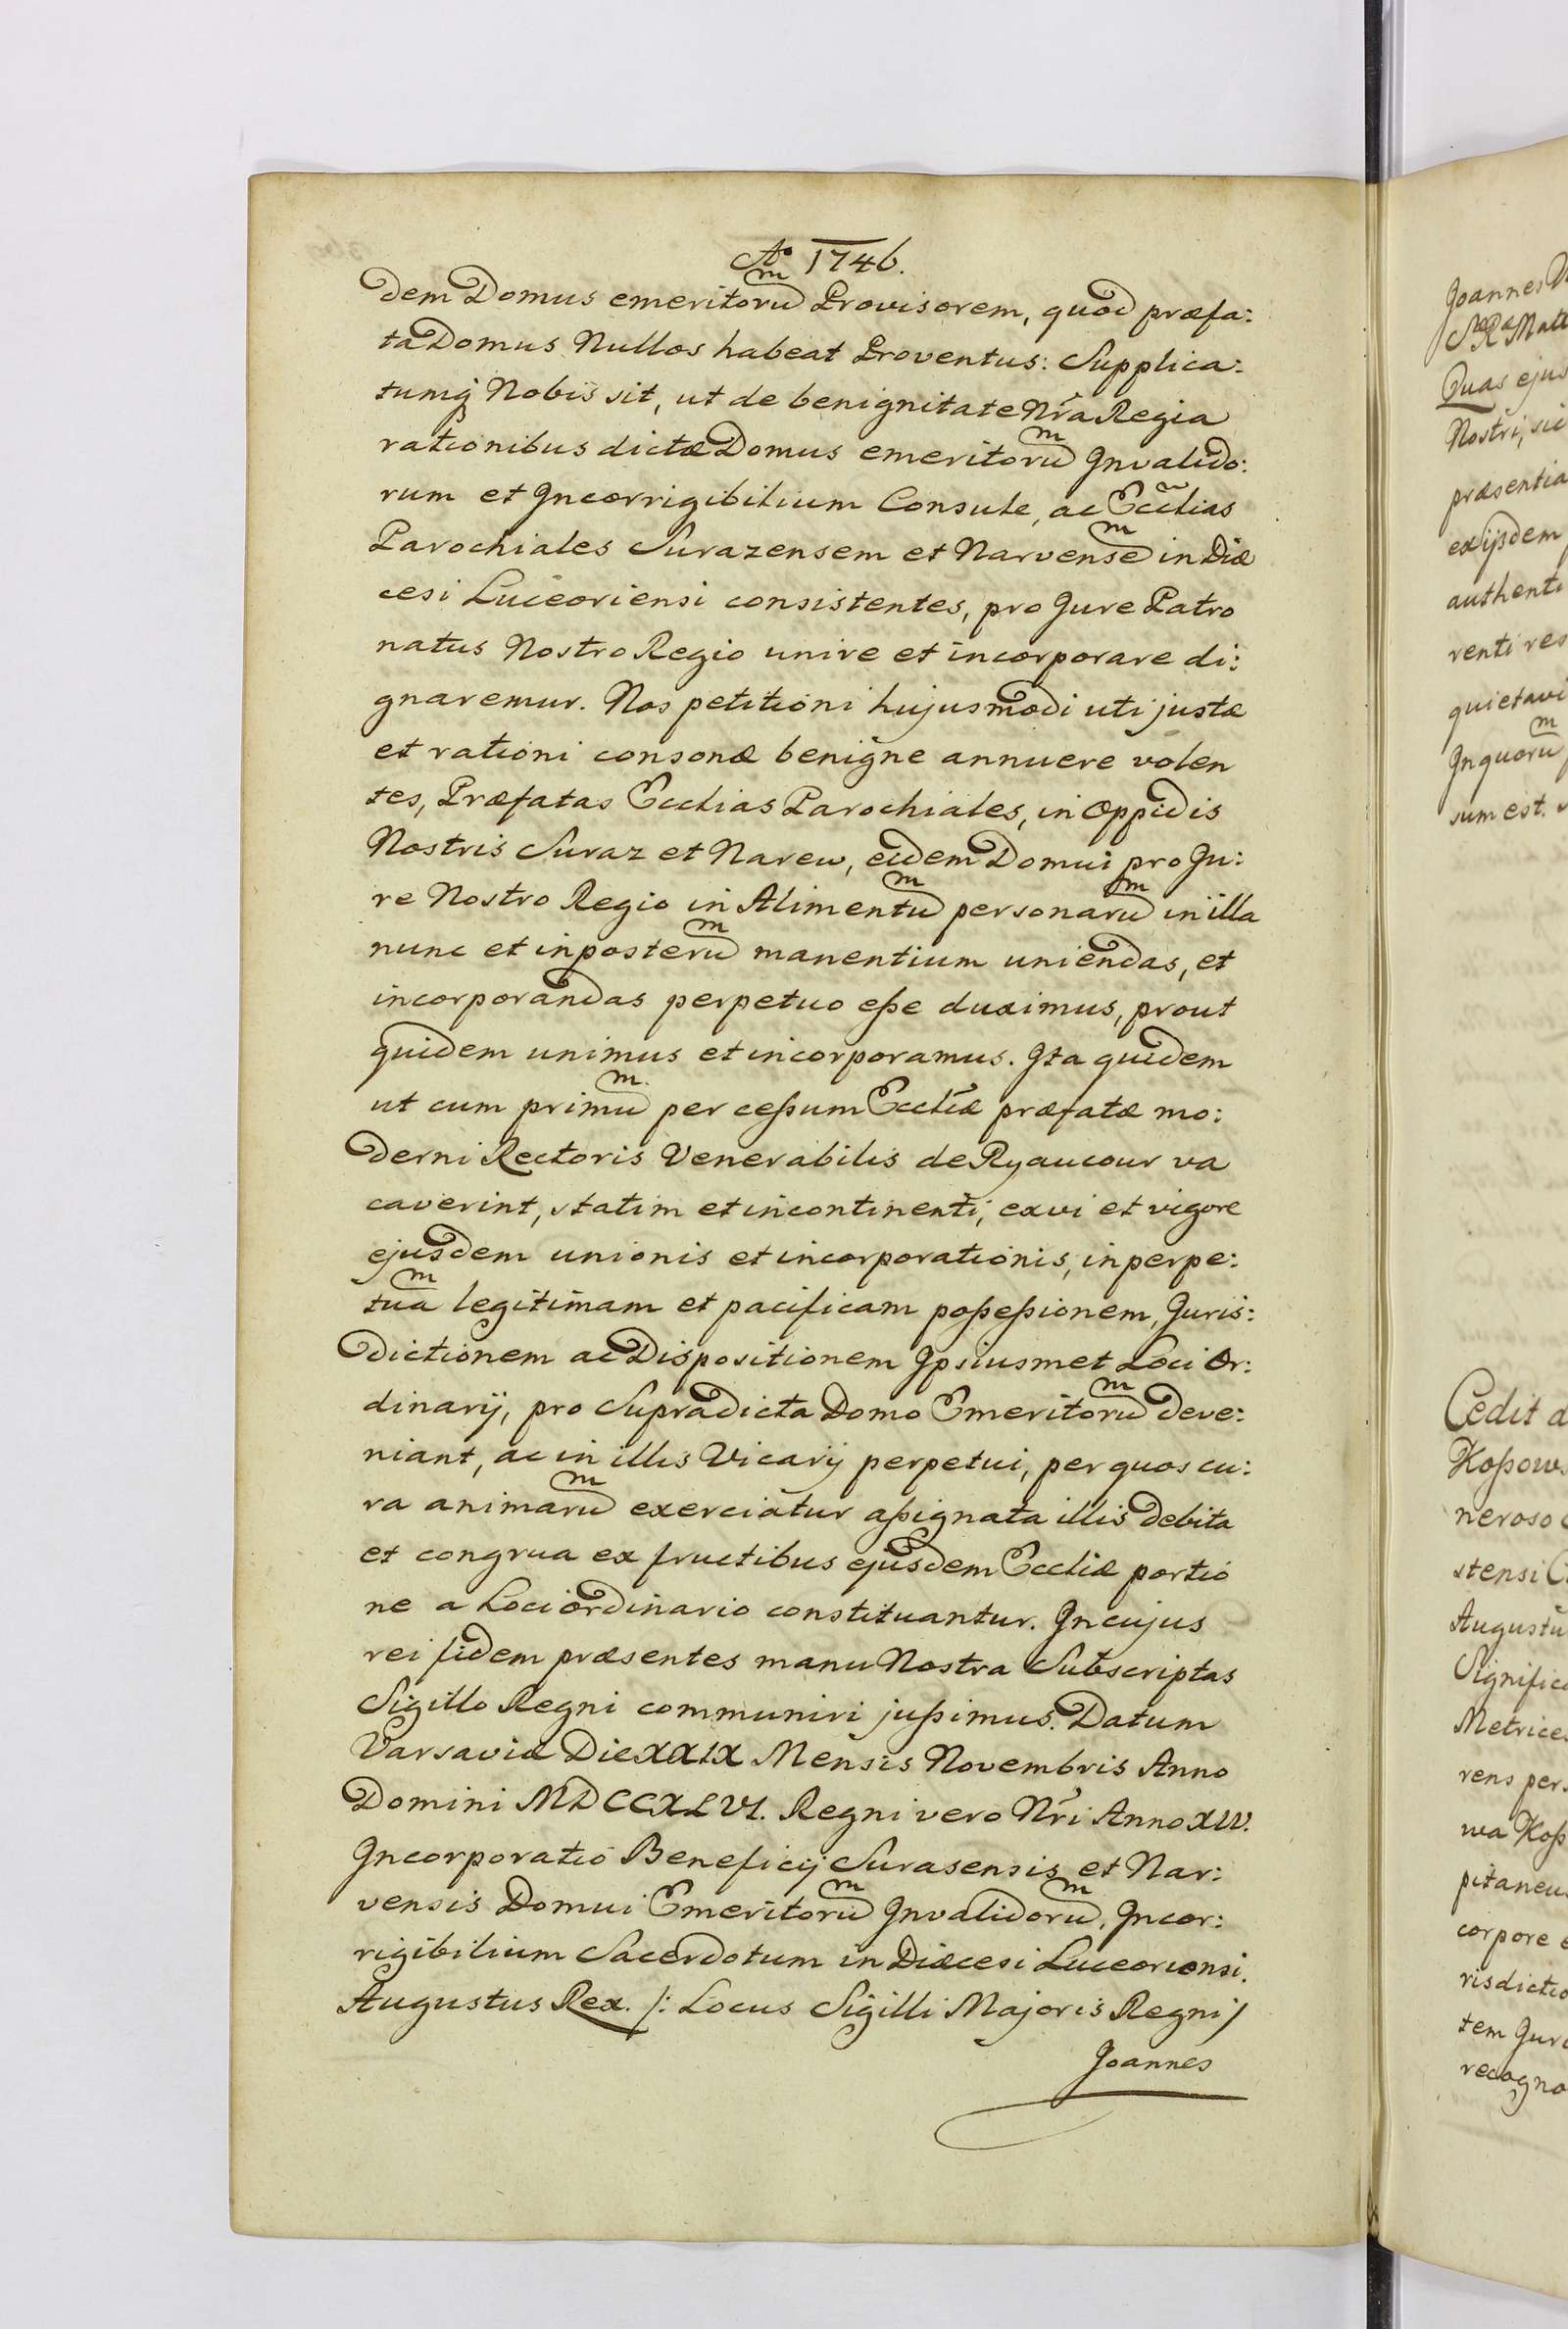 Aº 1746.
dem Domus emeritorũ Provisorem, quod præfa:
ta Domus Nullos habeat Proventus: Supplica:
tumq́ Nobis sit, ut de benignitate Nr̃a Regia
rationibus dictæ Domus emeritorũ Invalido:
rum et Incorrigibilium Consule, ac Eccl̃ias
Parochiales Surazensem et Narvensẽ in Diæ
cesi Luceoriensi consistentes, pro Jure Patro
natus Nostro Regio unire et incorporare di:
gnaremur. Nos petitioni hujusmodi uti justæ
et rationi consonæ benigne annuere volen
tes, Præfatas Ecclias Parochiales, in Oppidis
Nostris Suraz et Narew, eidem Domui pro Ju:
re Nostro Regio in Alimentũ personarũ in illa
nunc et inposterũ manentium uniendas, et
incorporandas perpetuo eße duximus, prout
quidem unimus et incorporamus. Ita quidem
ut cum primũ per ceßum Eccliæ præfatæ mo:
derni Rectoris Venerabilis de Ryaucour va
caverint, statim et incontinenti, ex vi et vigore
ejusdem unionis et incorporationis, in perpe:
tuã legitimam et pacificam poßeßionem, Juris:
dictionem ac Dispositionem Ipsiusmet Loci Or:
dinarij, pro Supradicta Domo Emeritorũ deve:
niant, ac in illis Vicarij perpetui, per quos cu:
ra animarũ exerciatur aßignata illis debita
et congrua ex fructibus ejusdem Eccliæ portio
ne a Loci ordinario constituantur. In cujus
rei fidem præsentes manu Nostra Subscriptas
Sigillo Regni communiri jußimus. Datum
Varsaviæ Die XXIX Mensis Novembris Anno
Domini MDCCXLVI. Regni vero Nr̃i Anno XIV.
Incorporatio Beneficij Surasensis et Nar:
vensis Domui Emeritorũ Invalidorũ, Incor:
rigibilium Sacerdotum in Diæcesi Luceoriensi.
Augustus Rex. /: Locus Sigilli Majoris Regni /
Joannes
Joannes
Quas ejus
Nostri, sic
præsentia
ex ijsdem
authenti
renti res
quietavi
In quorũ
sum est.
Cedit
Koßows
neroso
stensi
Augustũ
Signific
Metrices
rens per
wa Koß
pitaneus
corpore
risdictio
tem Jure
recogno